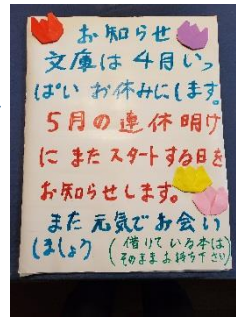 お知らせ
文庫は4月いっ
ぱいお休みにします。
5月の連休明け
にまたスタートする日を
お知らせします。
また元気でお会い
しましょう (借りている本は
そのままお持ち下さい)